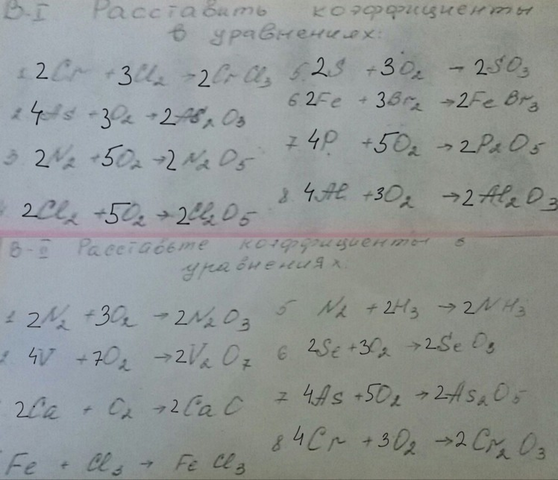 В-I Расставить коэффициенты
в уравнениях:
2Cr + 3Cl₂ → 2CrCl₃
4As + 3O₂ → 2As₂O₃
3 2N₂ + 5O₂ → 2N₂O₅
2Cl₂ + 5O₂ → 2Cl₂O₅
5. 2S + 3O₂ → 2SO₃
6 2Fe + 3Br₂ → 2FeBr₃
7 4P + 5O₂ → 2P₂O₅
8 4Al + 3O₂ → 2Al₂O₃
В-II Расставьте коэффициенты в
уравнениях.
1 2N₂ + 3O₂ → 2N₂O₃
4V + 7O₂ → 2V₂O₇
2Ca + O₂ → 2CaO
Fe + Cl₃ → FeCl₃
5 N₂ + 2H₃ → 2NH₃
6 2Se + 3O₂ → 2SeO₃
7 4As + 5O₂ → 2As₂O₅
8 4Cr + 3O₂ → 2Cr₂O₃